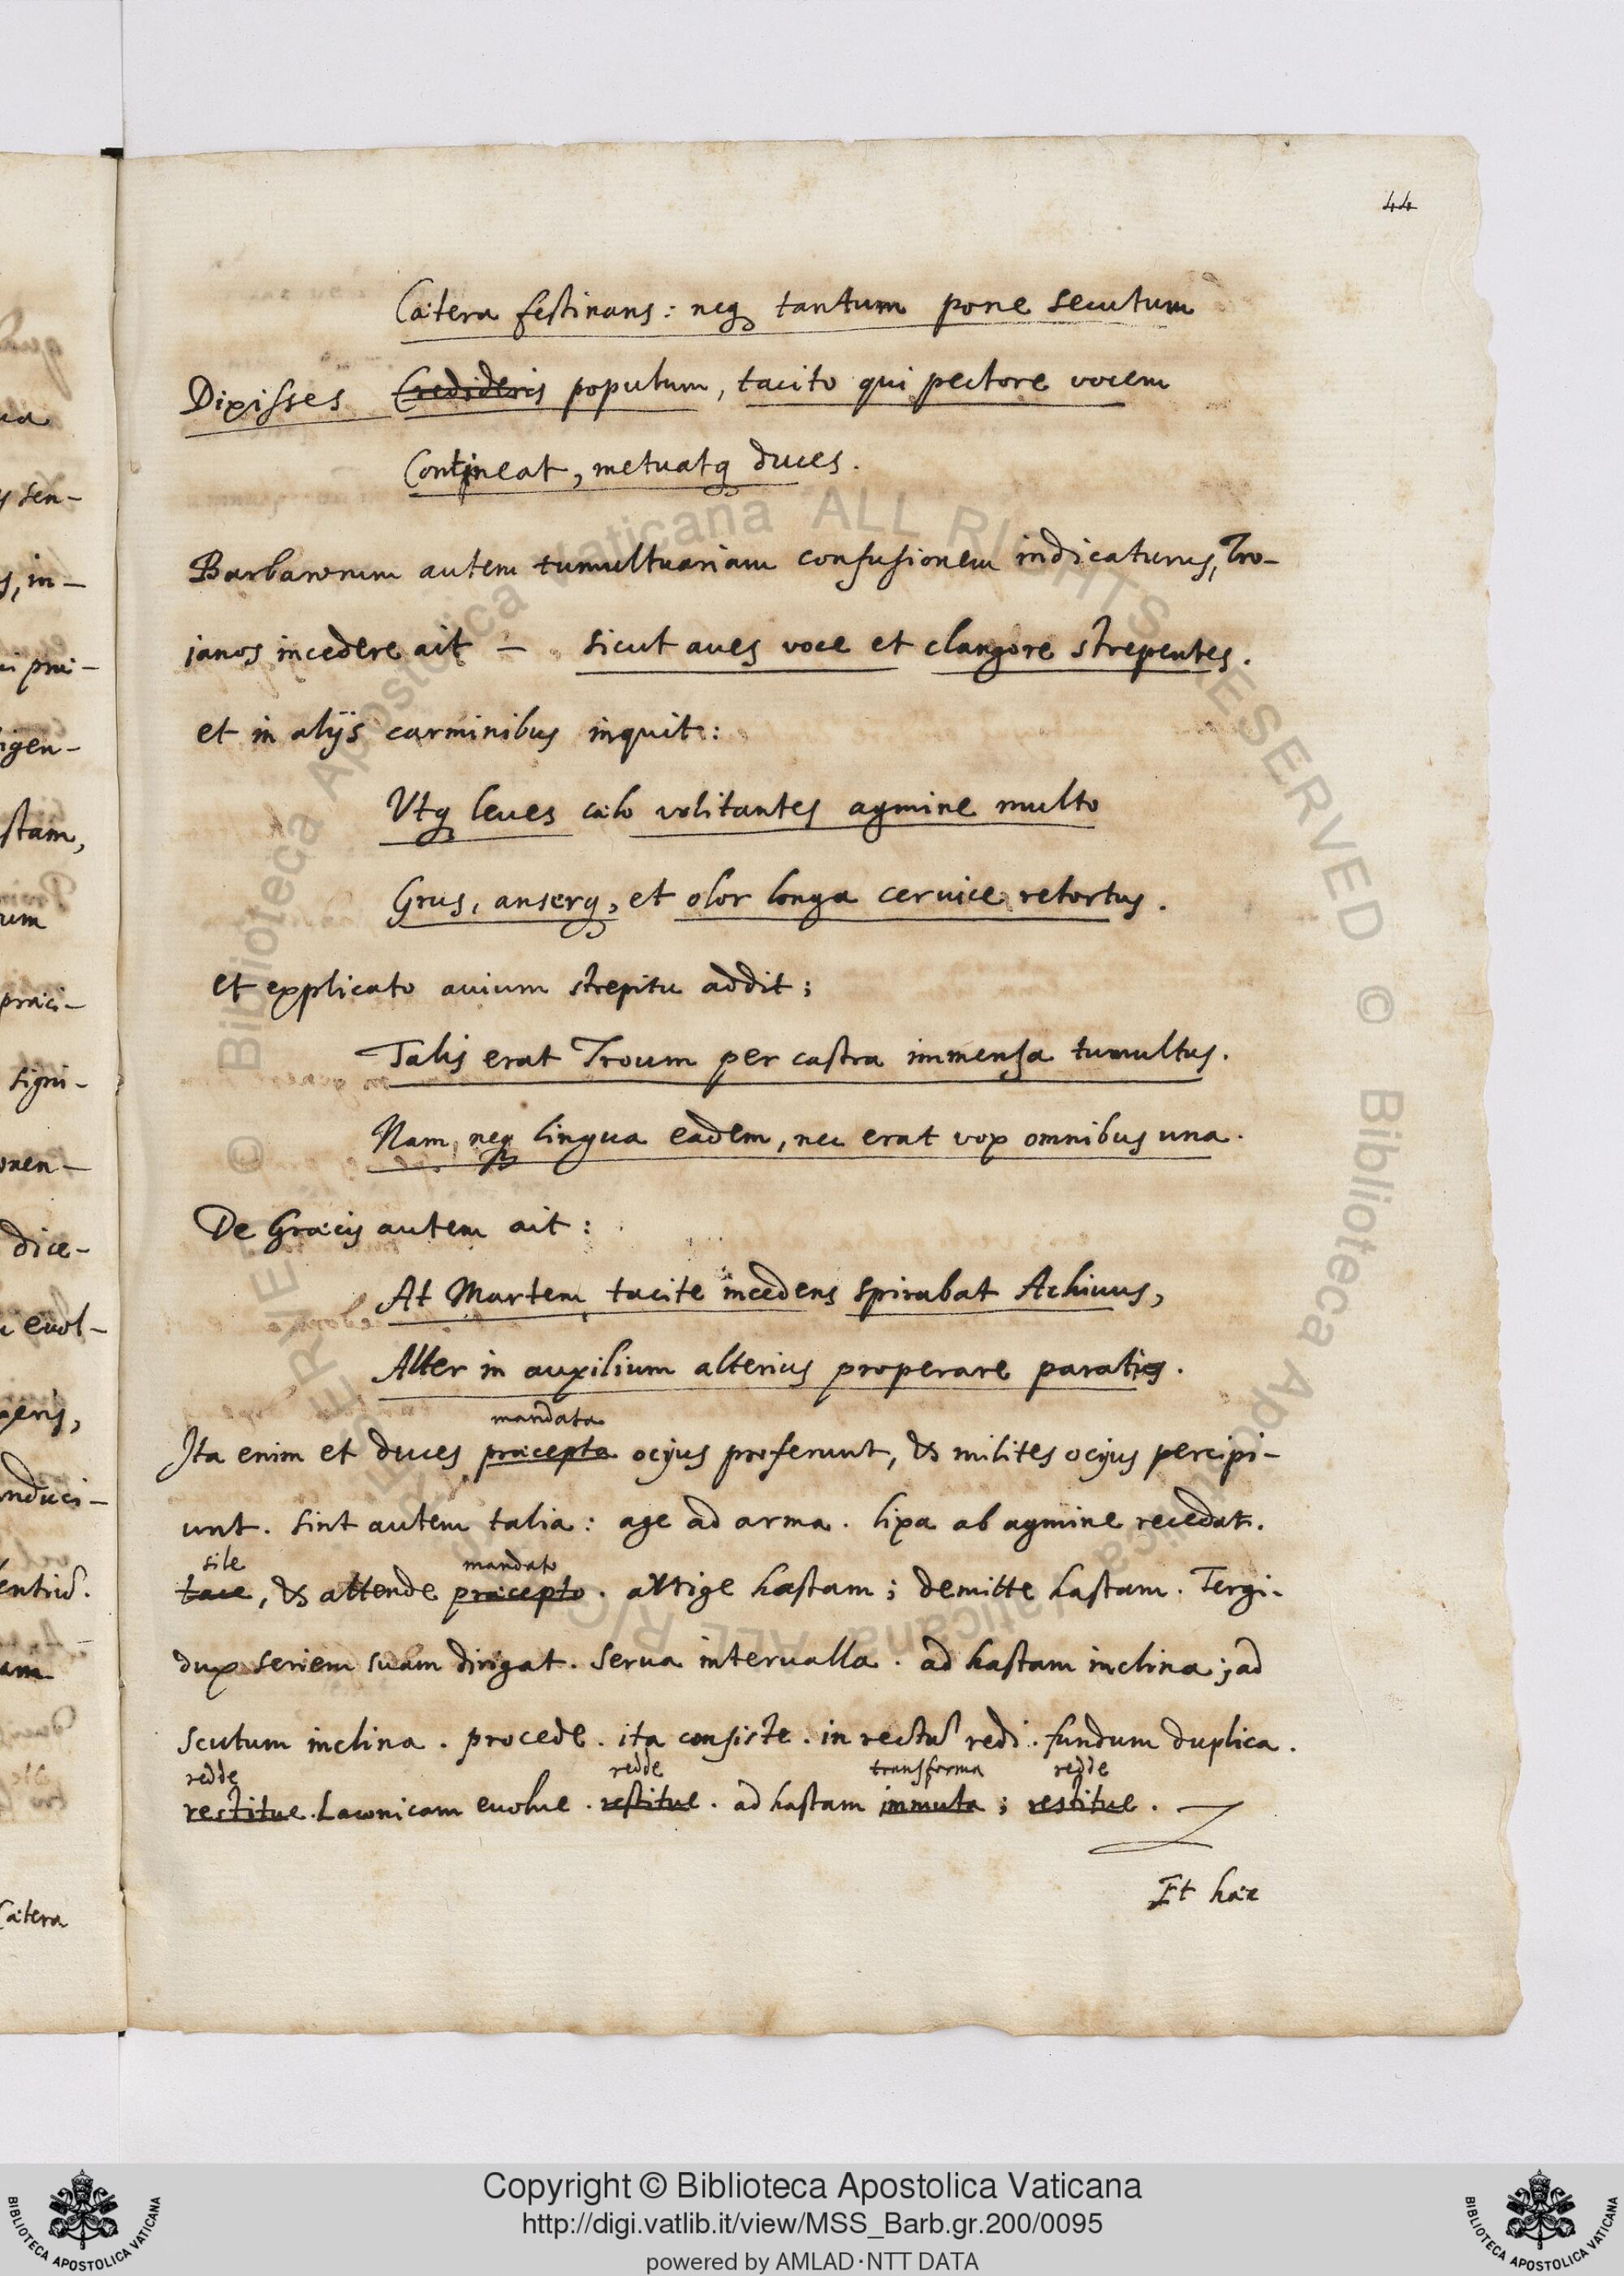 44
Cætera festinans: neq₃ tantum pone secutum
Dixisses Credideris populum, tacito qui pectore vocem
Contineat, metuatq₃ duces.
Barbarorum autem tumultuariam confusionem indicaturus, Tro-
janos incedere ait — sicut aues voce et clangore strepentes.
et in alijs carminibus inquit:
Vtq₃ leues cælo volitantes agmine multo
Grus, anserq₃, et olor longa ceruice retortus.
et explicato auium strepitu addit;
Talis erat Troum per castra immensa tumultus.
Nam, neq₃ lingua eadem, nec erat vox omnibus una.
De Græcis autem ait:
At Martem, tacite incedens spirabat Achiuus,
Alter in auxilium alterius properare paratus.
mandata
Ita enim et duces præcepta ocyus proferunt, & milites ocyus percipi-
unt. sint autem talia: age ad arma. lixa ab agmine recedat.
sile mandato
tace, & attende præcepto. attige hastam; demitte hastam. Tergi-
dux seriem suam dirigat. serua interualla. ad hastam inclina; ad
scutum inclina. procede. ita consiste. in rectū redi. fundum duplica.
redde redde transforma redde
restitue. Laconicam euolue. restitue. ad hastam immuta; restitue.
Et hæc
ua
sen-
s, in-
igen-
stam,
rum
præci-
signi-
onen-
dice-
euol-
nduci-
am
Cætera
© Biblioteca Apostolica Vaticana ALL RIGHTS RESERVED © Biblioteca Apostolica Vaticana ALL RIGHTS RESERVED
Copyright © Biblioteca Apostolica Vaticana
http://digi.vatlib.it/view/MSS_Barb.gr.200/0095
powered by AMLAD·NTT DATA
BIBLIOTECA APOSTOLICA VATICANA
BIBLIOTECA APOSTOLICA VATICANA